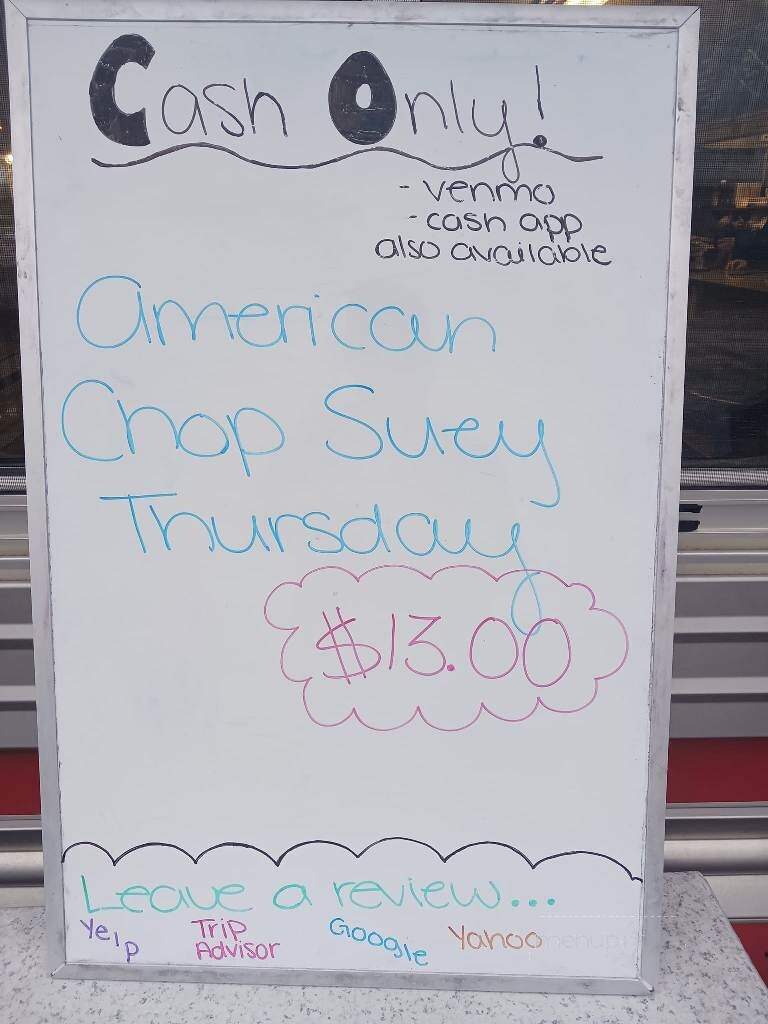 Cash Only!
- venmo
- cash app
also available
American
Chop Suey
Thursday
$13.00
Leave a review...
Yelp
Trip
Advisor
Google
Yahoo